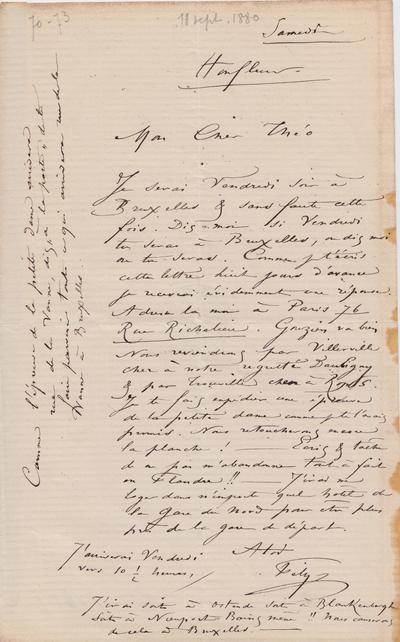 70-73
11 sept. 1880
Samedi
Honfleur.
Mon Cher Théo
Je serai Vendredi soir à
Bruxelles & sans faute cette
fois. Dis-moi si Vendredi
tu seras à Bruxelles, ou dis moi
où tu seras. Comme je t'écris
cette lettre huit jours d'avance
je recevrai évidemment une réponse.
Adresse la moi à Paris 76
Rue Richelieu. Gouzien va bien
Nous reviendrons par Villerville
cher à notre regretté Daubigny
& par Trouville cher à Rops.
Je te fais expédier une épreuve
de la petite dame comme je t'avais
promis. Nous retoucherons encore
la planche ! — Ecris & tâche
de ne pas m'abandonner tout à fait
en Flandre !! — J'irai me
loger dans n'importe quel hôtel de
la Gare du Nord pour être plus
près de la gare de départ.
J'arriverai Vendredi
vers 10 ½ heures,
A toi
Fély
J'irai soit à Ostende soit à Blankenberghe
soit à Nieuport Bains même !! Nous causerons
de cela à Bruxelles.
Comme l'épreuve de la petite dame arrivera
rue de la Vanne, dis à la poste de te
faire parvenir toute ce qui arrivera rue de la
Vanne à Bruxelles